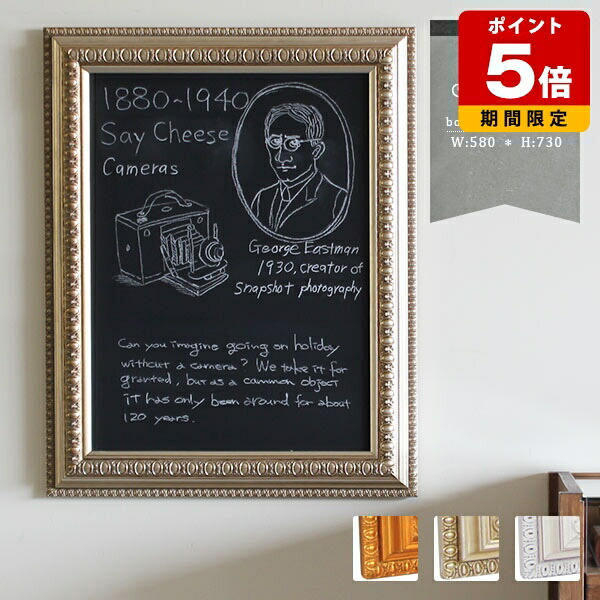 ポイント
5倍
期間限定
W:580 * H:730
1880~1940
Say Cheese
Cameras
George Eastman
1930, creator of
Snapshot photography
Can you imagine going on holiday
without a camera? We take it for
granted, but as a common object
it has only been around for about
120 years.